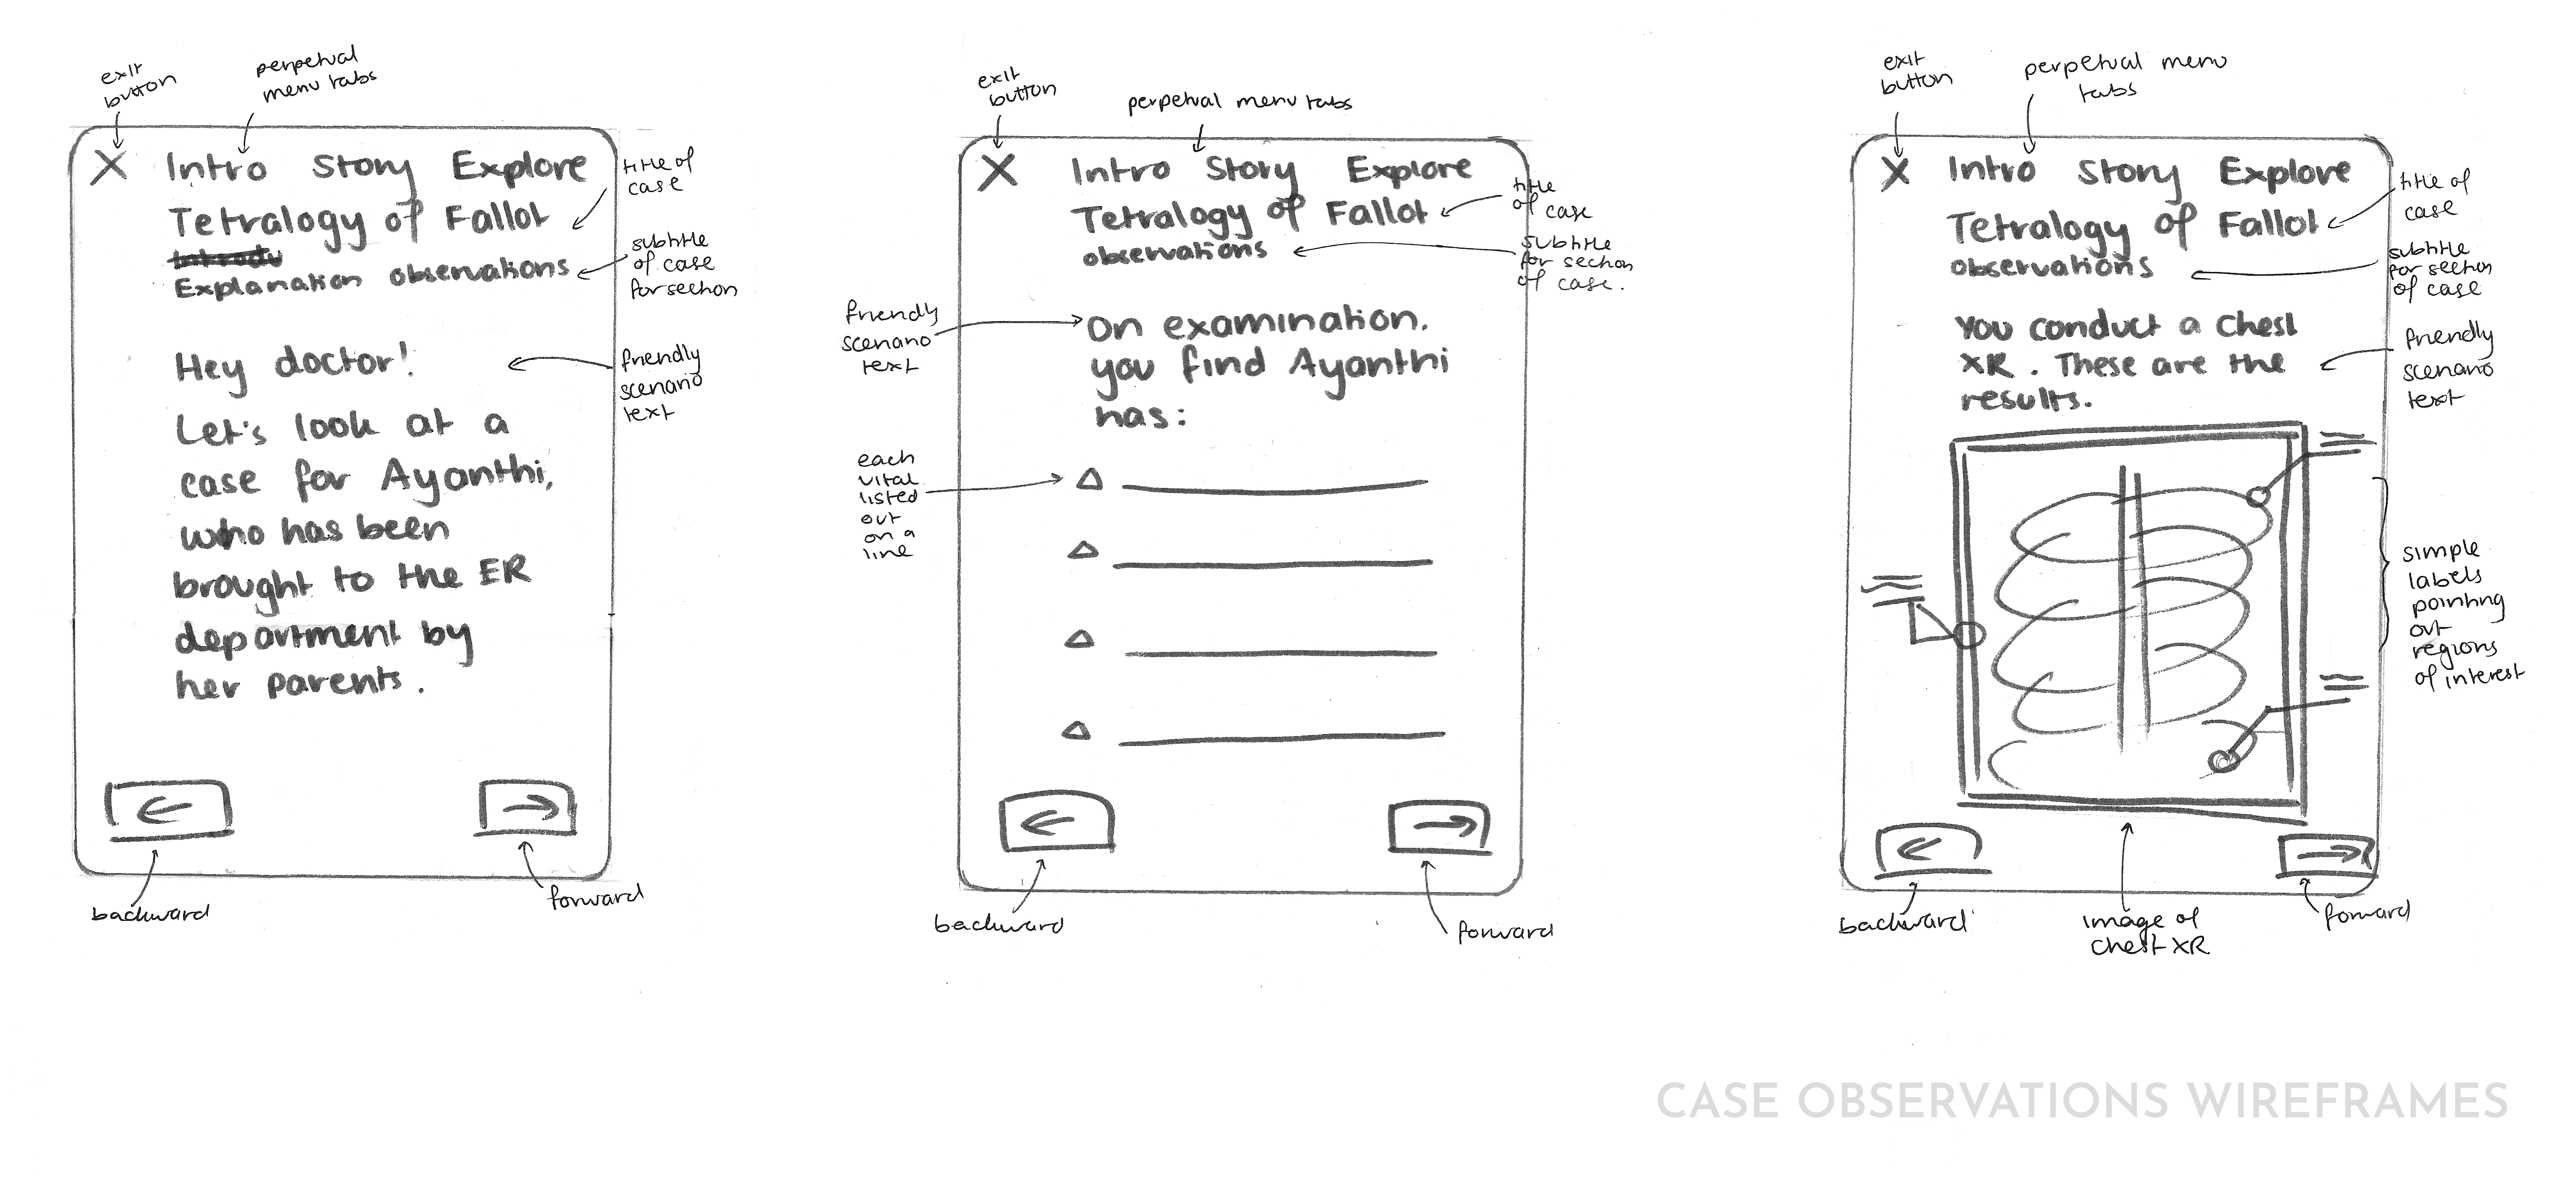 exit
button
perpetual
menu tabs
X Intro Story Explore
title of
case
Tetralogy of Fallot
subtitle
of case
for section
Explanation observations
Hey doctor!
friendly
scenario
text
Let's look at a
case for Ayanthi,
who has been
brought to the ER
department by
her parents.
backward
forward
exit
button
perpetual menu tabs
X Intro Story Explore
title
of case
Tetralogy of Fallot
subtitle
for section
of case.
observations
friendly
scenario
text
On examination.
you find Ayanthi
has:
each
vital
listed
out
on a
line
backward
forward
exit
button
perpetual menu
tabs
X Intro Story Explore
title of
case
Tetralogy of Fallot
subtitle
for section
of case
observations
You conduct a Chest
XR. These are the
results.
friendly
scenario
text
simple
labels
pointing
out
regions
of interest
backward
image of
chest XR
forward
CASE OBSERVATIONS WIREFRAMES